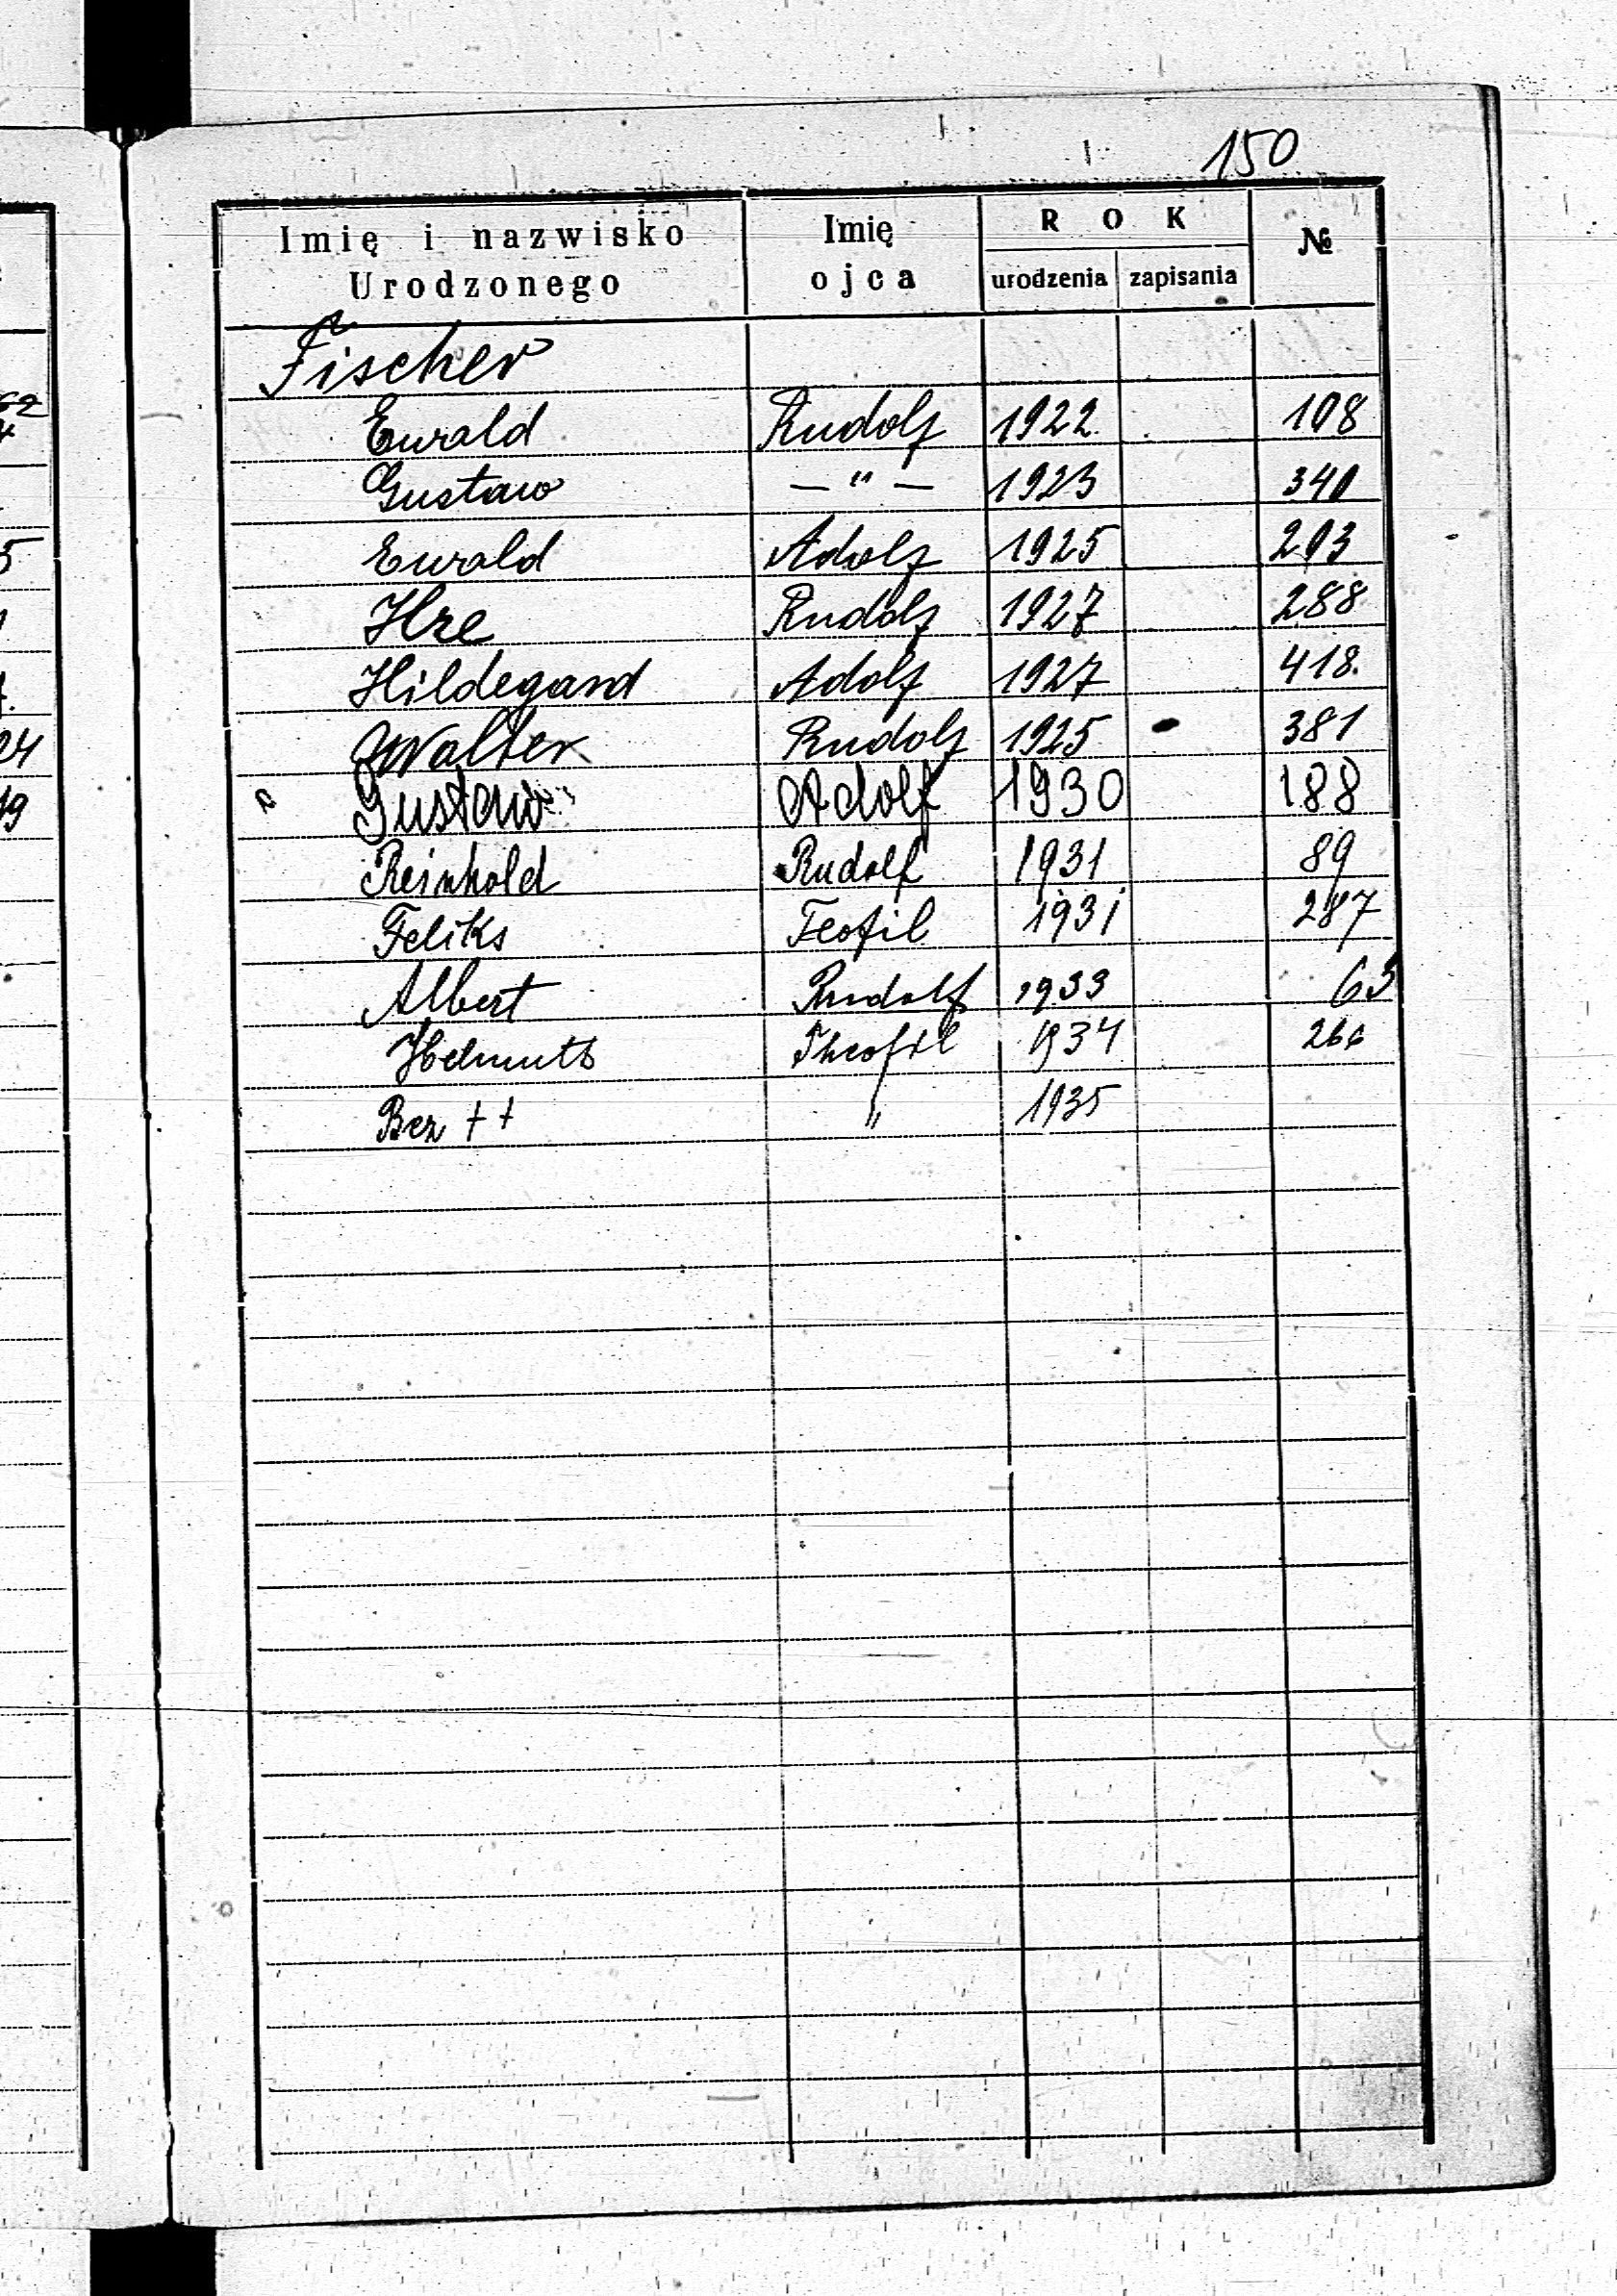 150
Imię i nazwisko Urodzonego Imię ojca ROK urodzenia zapisania №
Fischer
Ewald Rudolf 1922 108
Gustaw — " — 1923 340
Ewald Adolf 1925 293
Ilze Rudolf 1927 288
Hildegard Adolf 1927 418.
Walter Rudolf 1925 381
Gustaw Adolf 1930 188
Reinhold Rudolf 1931 89
Feliks Teofil 1931 287
Albert Rudolf 1933 63
Helmuth Theofil 1934 266
Ber ++ " 1935